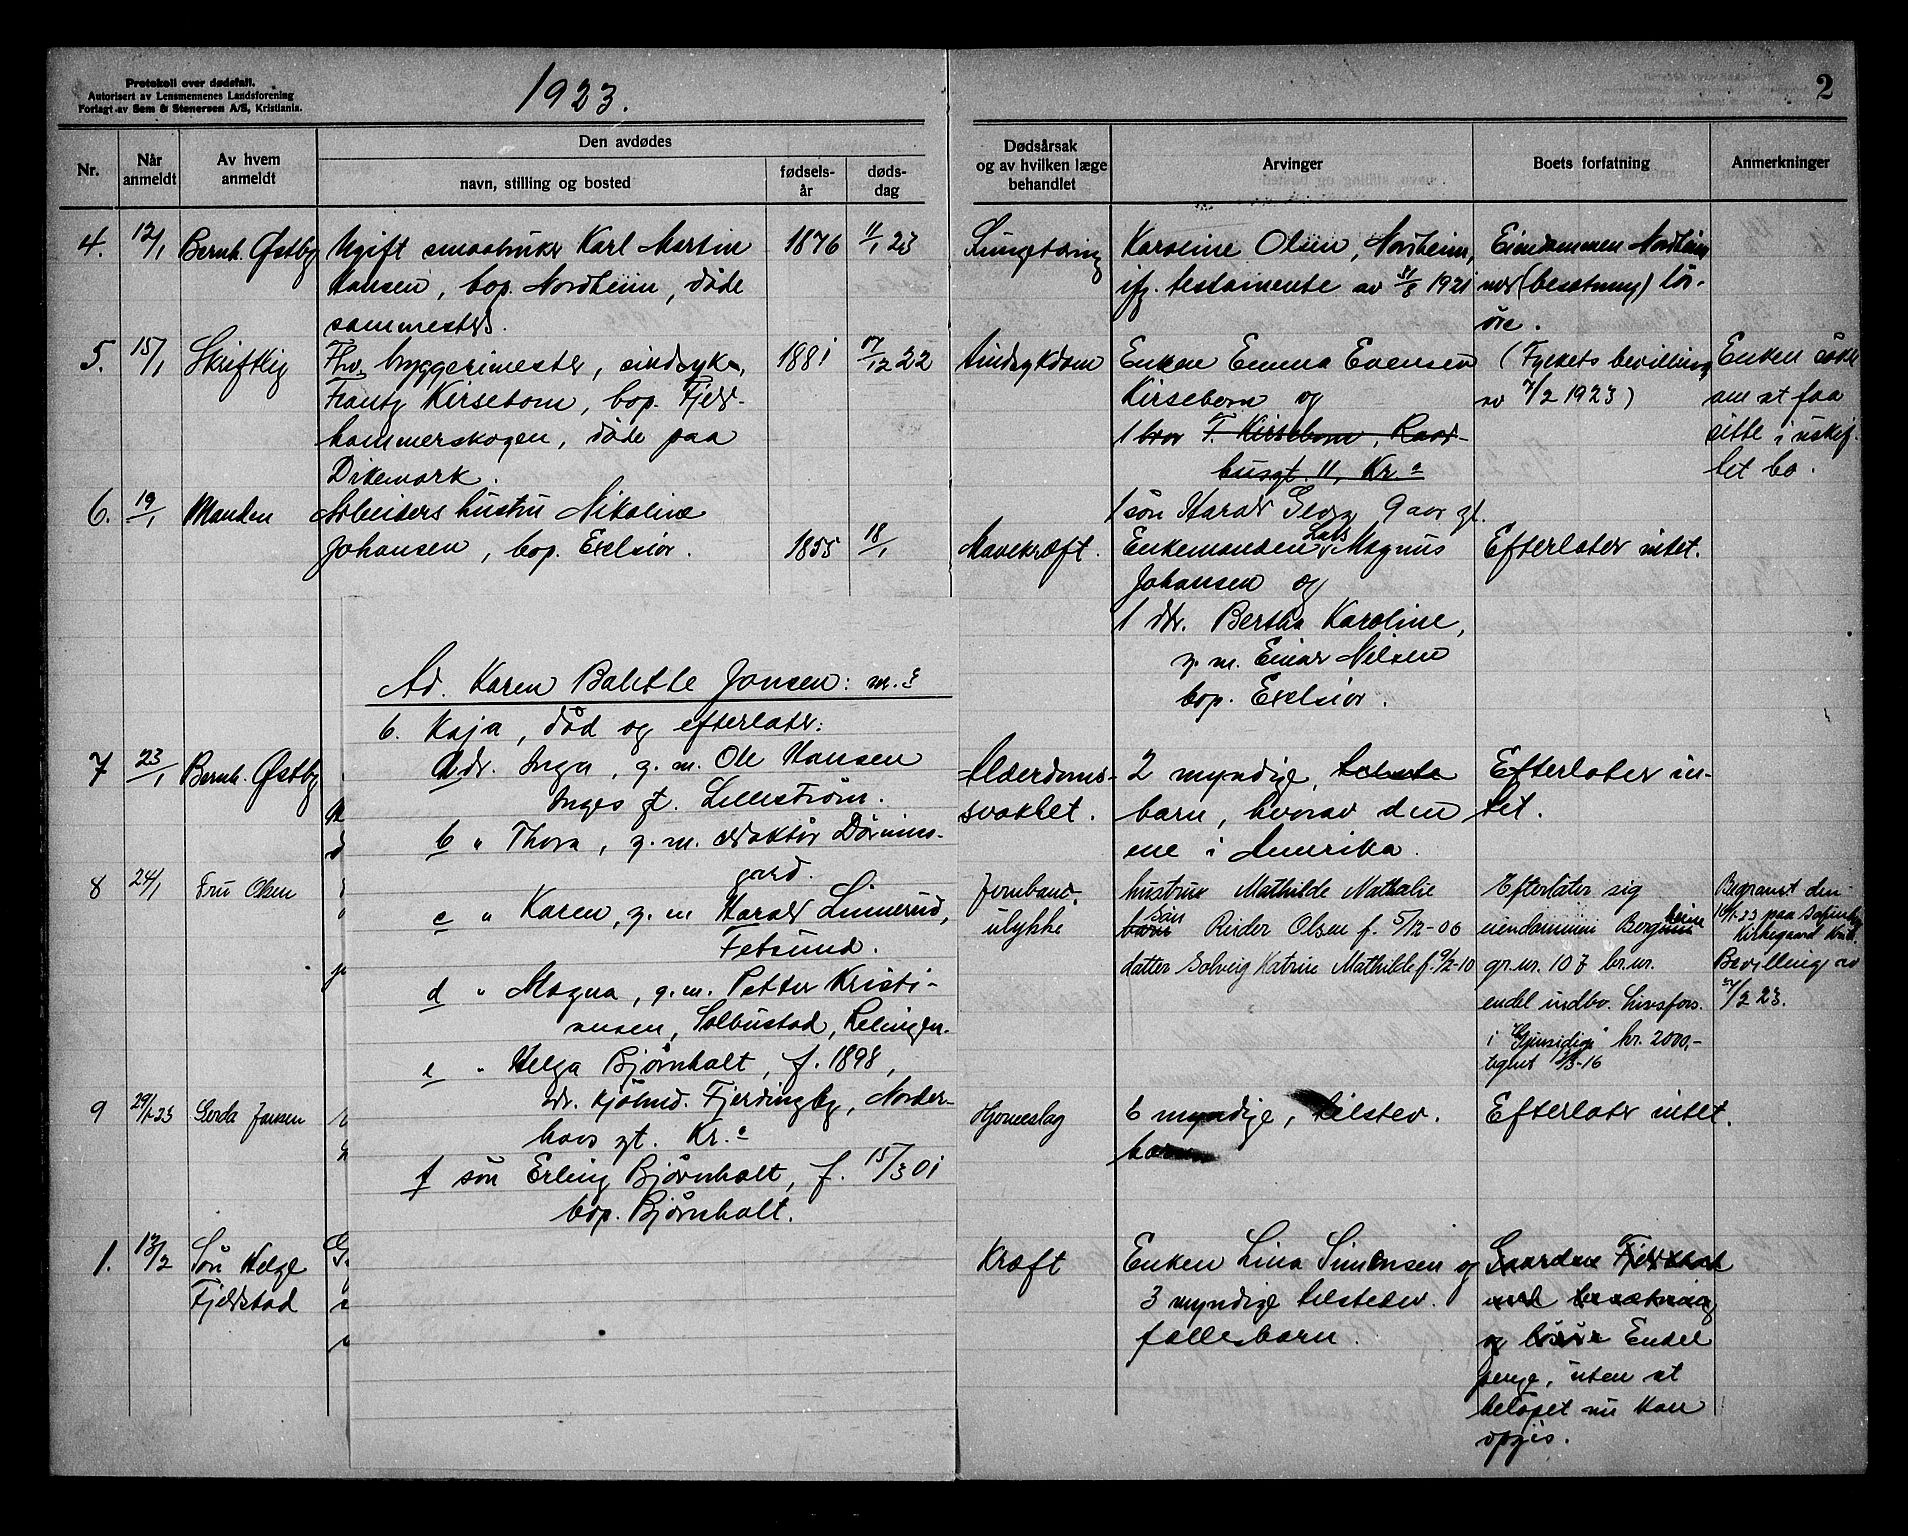 Protokoll over dødsfall.
Autorisert av Lensmennenes Landsforening
Forlagt av Sem & Stenersen A/S, Kristiania.
1923.
2
Nr.
Når anmeldt
Av hvem anmeldt
Den avdødes
navn, stilling og bosted
fødsels-år
døds-dag
Dødsårsak
og av hvilken læge
behandlet
Arvinger
Boets forfatning
Anmerkninger
4. 12/1 Bernh. Østby Ugift smaabruker Karl Martin 1876 11/1 23
Hansen, bop. Nordheim, døde
sammesteds.
Lungetæring
Karoline Olsen, Nordheim,
ifg. testamente av 31/8 1921
Eiendommen Nordheim
med (besætning) løs-
øre.
5. 15/1 Skriftlig Fhv. bryggerimester, sindsyk, 1881 17/12 22
Frantz Kirsebom, bop. Fjeld-
hammerskogen, døde paa
Dikemark.
Sindsykdom
Enken Emma Evensen
Kirsebom og
1 bror F. Kirsebom, Raad-
husgt. 11, Kr.a
1 søn Harald Georg 9 aar gl.
(Fylkets bevilling
av 7/2 1923)
Enken søker
om at faa
sitte i uskif-
tet bo.
6. 19/1 Manden Arbeiders hustru Nikoline
Johansen, bop. Exelsior. 1855 18/1
Mavekræft.
Enkemanden Lars Magnus
Johansen og
1 dtr. Bertha Karoline,
g. m. Einar Nilsen
bop. Exelsior.
Efterlater intet.
Ad. Karen Balette Jonsen: m. 3
6. Kaja, død og efterlater:
a dr. Inga, g. m. Ole Hansen
Inges gt. Lillestrøm.
b " Thora, g. m. redaktør Dørums-
gard.
c " Karen, g. m Harald Linnerud,
Fetsund.
d " Magna, g. m. Petter Kristi-
ansen, Solbustad, Relingen.
e " Helga Bjørnholt, f. 1898,
adr. Kjøbmd. Fjerdingby, Norder-
hovs gt. Kr.a
f søn Erling Bjørnholt, f. 15/3 01
bop. Bjørnholt.
7 23/1 Bernh. Østby
Alderdoms-
svakhet.
2 myndige,
barn, hvorav den
ene i Amerika.
Efterlater in-
tet.
8 24/1 Fru Olsen
Jernbane-
ulykke
hustru Mathilde Nathalie
barn søn Reidar Olsen f. 5/12-06
datter Solveig Katrine Mathilde f. 9/2-10
Efterlater sig
eiendommen Bergheim
gr. nr. 107 br. nr.
endel indbo. Livsfors.
i "Gjensidige" kr. 2000,-
utgent 13/3-16
Begravet den
paa
Kirkegaard
Bevilling av
27/2 23.
9 29/1-23 Gerda Jansen
Hjerneslag
6 myndige, tilstev.
barn
Efterlater intet.
1. 13/2 Søn Helge
Fjeldstad
Kræft
Enken Lina Simensen og
3 myndige tilstedev.
fællesbarn.
Gaarden Fjeldstad
med besætning
og løsøre Endel
penge, uten at
beløpet nu kan
opgis.